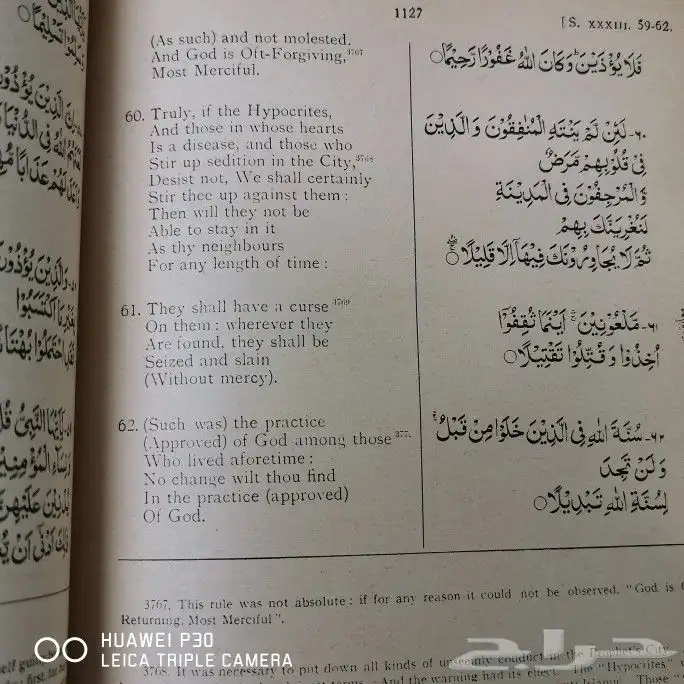 1127
[S. XXXIII. 59-62.
(As such) and not molested.
And God is Oft-Forgiving,³⁷⁶⁷
Most Merciful.
60. Truly, if the Hypocrites,
And those in whose hearts
Is a disease, and those who
Stir up sedition in the City,³⁷⁶⁸
Desist not, We shall certainly
Stir thee up against them :
Then will they not be
Able to stay in it
As thy neighbours
For any length of time :
61. They shall have a curse ³⁷⁶⁹
On them : wherever they
Are found, they shall be
Seized and slain
(Without mercy).
62. (Such was) the practice
(Approved) of God among those
Who lived aforetime :
No change wilt thou find
In the practice (approved)
Of God.
فَلَا يُؤْذَيْنَ وَكَانَ اللهُ غَفُورًا رَحِيمًا
٦٠- لَئِنْ لَمْ يَنْتَهِ الْمُنٰفِقُونَ وَ الَّذِينَ
فِي قُلُوبِهِمْ مَرَضٌ
وَّالْمُرْجِفُونَ فِي الْمَدِينَةِ
لَنُغْرِيَنَّكَ بِهِمْ
ثُمَّ لَا يُجَاوِرُونَكَ فِيهَآ إِلَّا قَلِيلًا
٦١- مَلْعُونِينَ أَيْنَمَا ثُقِفُوٓا
اُخِذُوا وَ قُتِّلُوا تَقْتِيلًا
٦٢- سُنَّةَ اللهِ فِي الَّذِينَ خَلَوْا مِنْ قَبْلُ
وَ لَنْ تَجِدَ
لِسُنَّةِ اللهِ تَبْدِيلًا
3767. This rule was not absolute : if for any reason it could not be observed, "God is
Returning, Most Merciful".
3768. It was necessary to put down all kinds of unseemly conduct in the Prophet's City.
And the warning had its effect. The "Hypocrites"
Those
HUAWEI P30
LEICA TRIPLE CAMERA
حراج